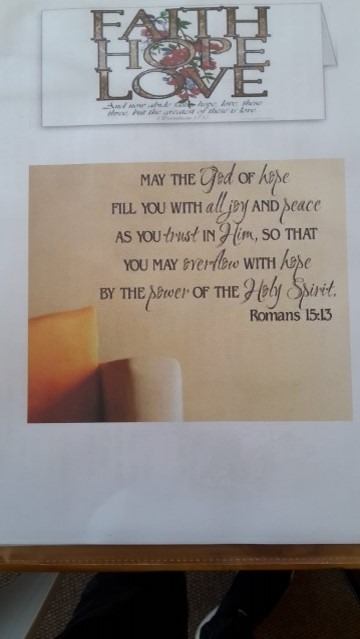 FAITH
HOPE
LOVE
And now abide faith, hope, love, these
three, but the greatest of these is love.
MAY THE God OF hope
FILL YOU WITH all joy AND peace
AS YOU trust IN Him, SO THAT
YOU MAY overflow WITH hope
BY THE power OF THE Holy Spirit.
Romans 15:13